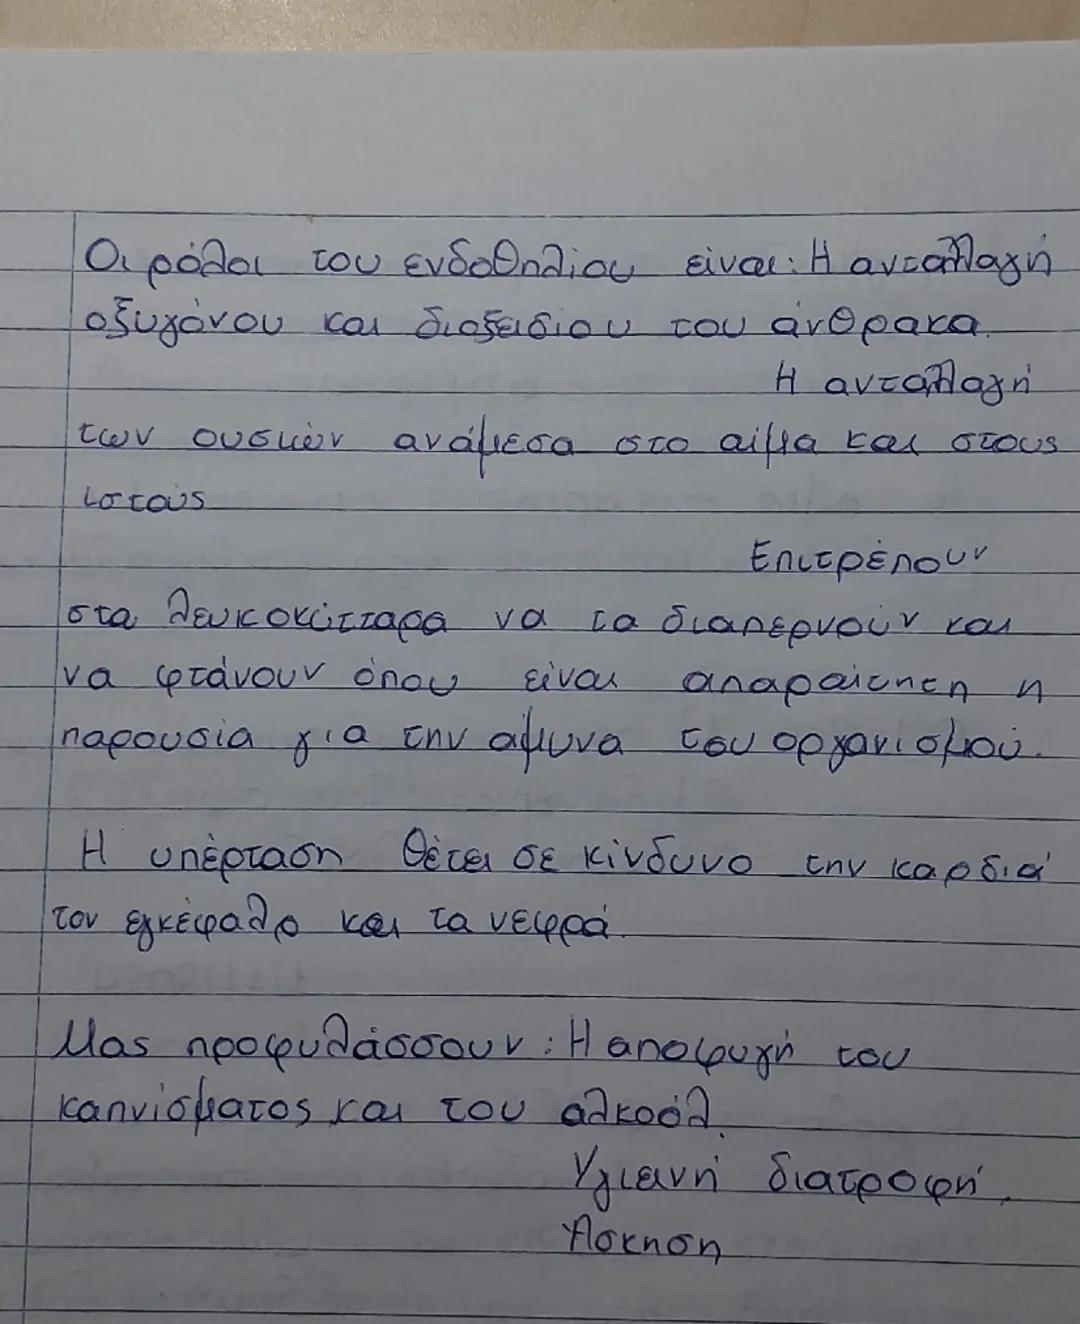 Οι ρόλοι του ενδοθηλίου είναι: Η ανταλλαγή
οξυγόνου και διοξειδίου του άνθρακα.
Η ανταλλαγή
των ουσιών ανάμεσα στο αίμα και στους
ιστούς
Επιτρέπουν
στα λευκοκύτταρα να τα διαπερνούν και
να φτάνουν όπου είναι απαραίτητη η
παρουσία για την αμυνα του οργανισμού.
Η υπέρταση θέτει σε κίνδυνο την καρδιά
τον εγκέφαλο και τα νεφρά.
Μας προφυλάσσουν: Η αποφυγή του
καπνίσματος και του αλκοόλ.
Υγιεινή διατροφή.
Άσκηση